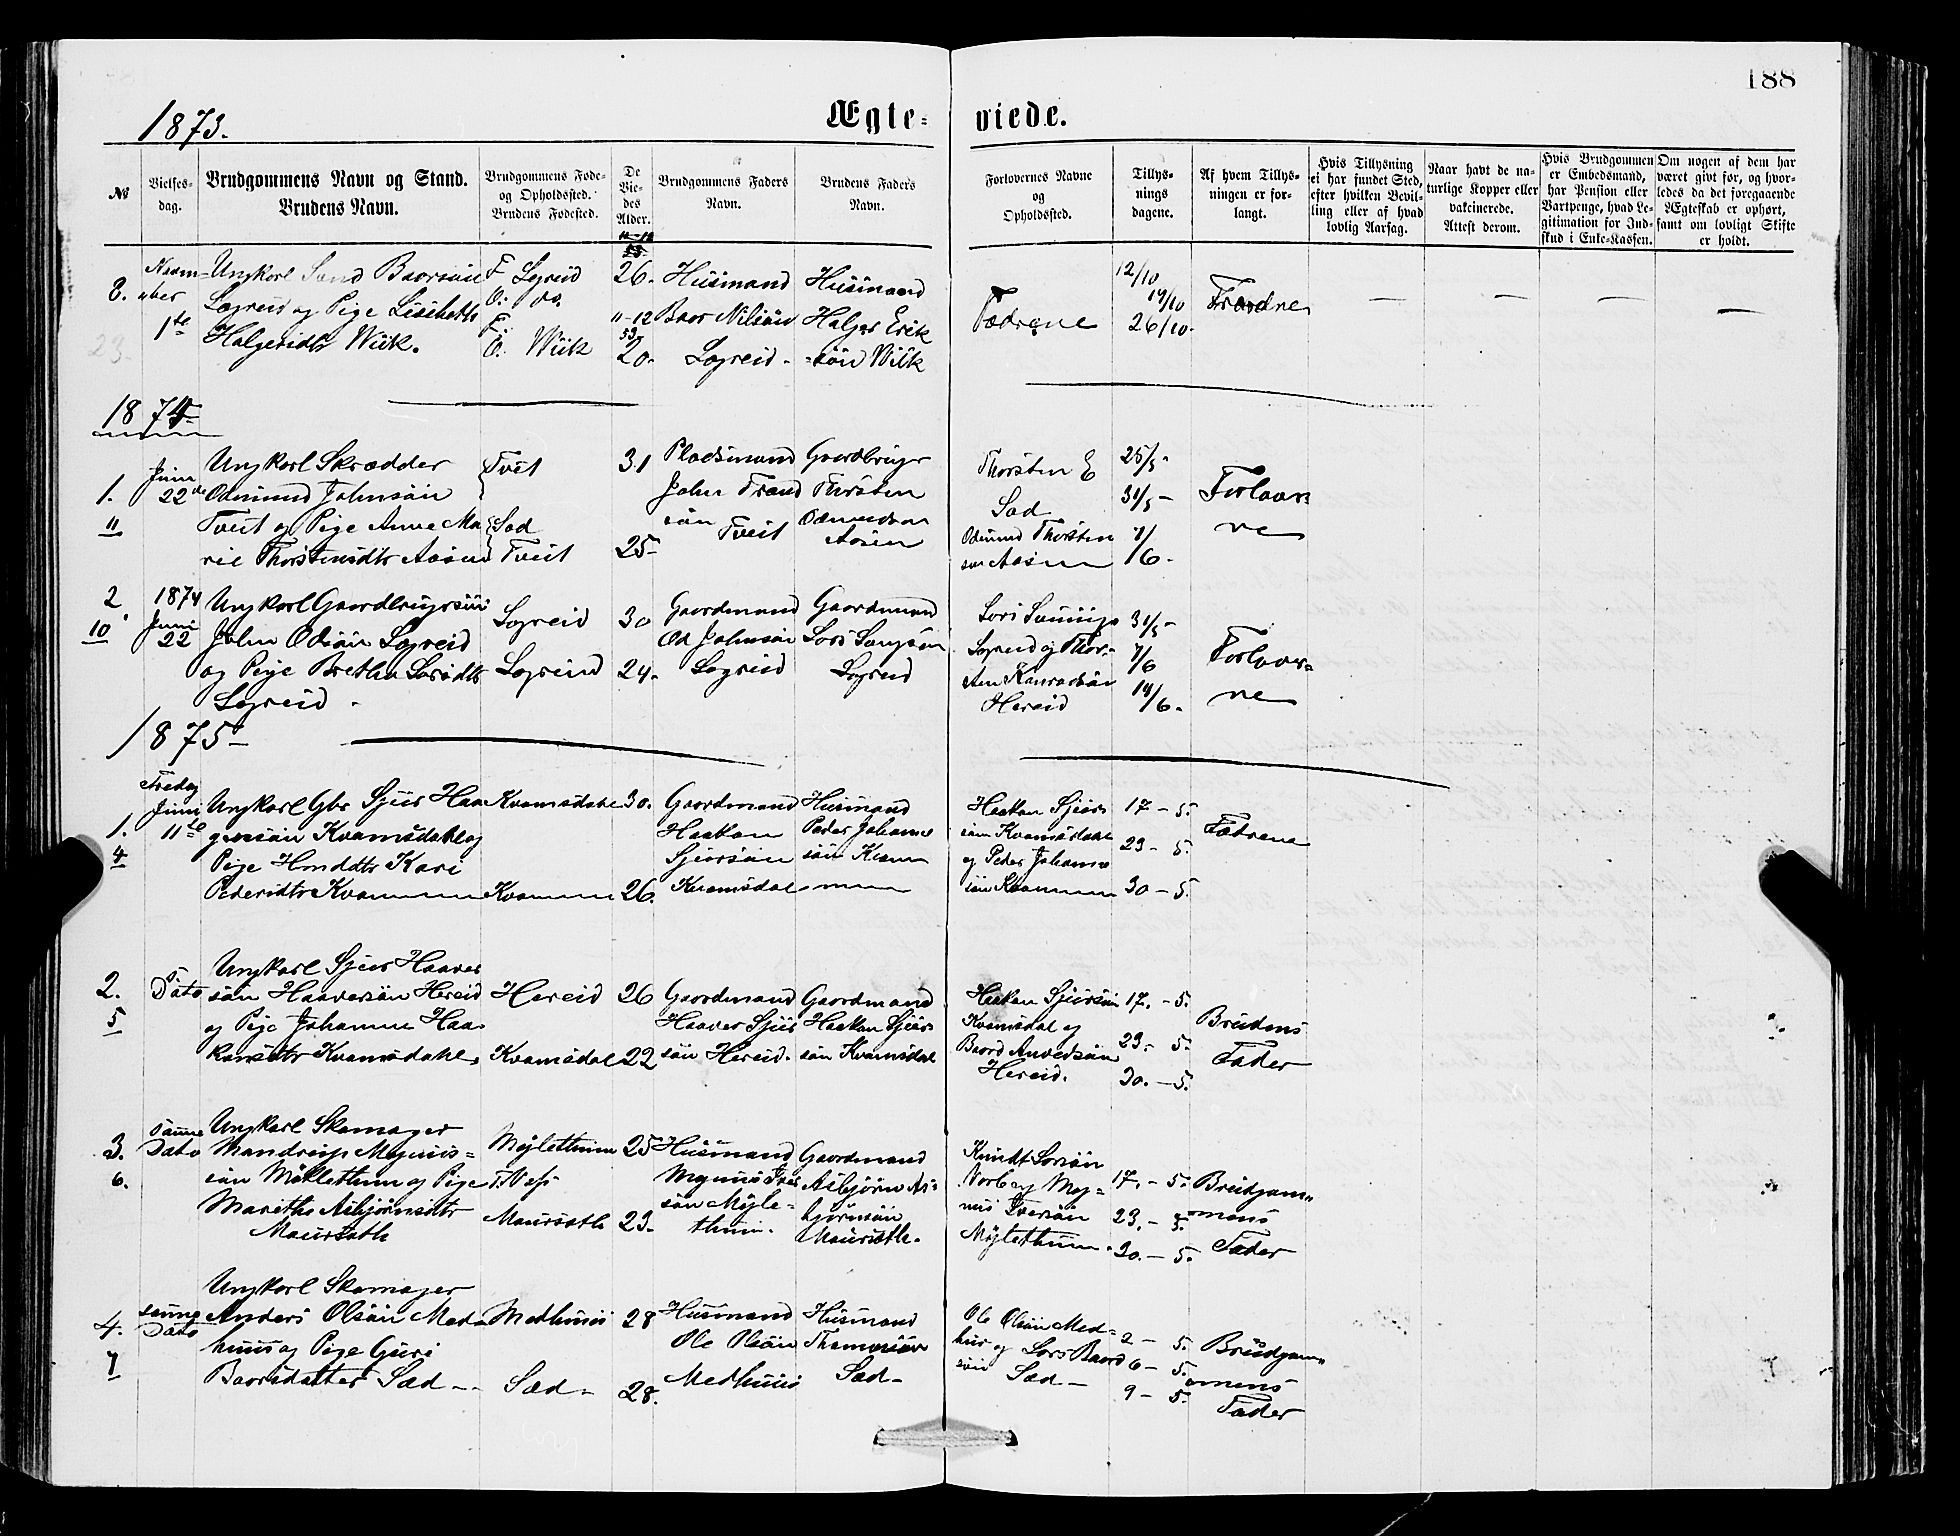 188
1873.
Ægte-
viede.
№
Vielses-
dag.
Brudgommens Navn og Stand.
Brudens Navn.
Brudgommens Føde-
og Opholdssted.
Brudens Fødested.
De
Vie-
des
Alder.
Brudgommens Faders
Navn.
Brudens Faders
Navn.
Forlovernes Navne
og
Opholdssted.
Tillys-
nings
dagene.
Af hvem Tillys-
ningen er for-
langt.
Hvis Tillysning
ei har fundet Sted,
efter hvilken Bevil-
ling eller af hvad
lovlig Aarsag.
Naar havt de na-
turlige Kopper eller
vakcinerede.
Attest derom.
Hvis Brudgommen
er Embedsmand,
har Pension eller
Vartpenge, hvad Le-
gitimation for Ind-
skud i Enke-Kassen.
Om nogen af dem har
været givt før, og hvor-
ledes da det foregaaende
Ægteskab er ophørt,
samt om lovligt Skifte
er holdt.
8.
1ste
Ungkarl
og Pige
Wiik.
F
do.
Wiik
26.
11-12
53
20.
Husmand
Husmand
Wiik
Fædrene
12/10
19/10
26/10.
1874
1.
11
Juni
22de
Ungkarl Skrædder
Odmund Johnsøn
Tveit og Pige Anne Ma
rie Thorstensdtr Aasen
Tveit
Sæd
Tveit
31
25-
Pladsmand
John
søn Tveit
Thorsten
Aasen
Thorsten E
Sæd
Odmund Thorsten
søn Aasen
25/5-
31/5-
7/
/6.
Forlover=
ne
2
10
1874
Juni
22
Ungkarl
John Odsøn
og Pige Bretha
30
24.
Gaardmand
Od Johnsøn
Gaardmand
Hereid
31/5-
7/6
14/6.
Forlover=
ne
1875-
1.
4
Fredag
Juni
11te
Ungkarl Gbr Sjur Haa
Kvamsdahl og
Pige Hmddtr Kari
Pedersdtr Kvammen
Kvamsdahl
Kvammen
30.
26.
Gaardmand
Haakon
Sjursøn
Kvamsdal
Husmand
Peder Johanne
søn Kvam
men
Haakon Sjur
søn Kvamsdahl
og Peder Johanne
søn Kvammen
17-5.
23-5.
30-5.
Fædrene
2.
5
Dato
Ungkarl Sjur Haaver
søn Haaversøn Hereid
og Pige Johanne Haa
konsdtr Kvamsdahl.
Hereid
Kvamsdal
26
22
Gaardmand
Haaver Sjur
søn Hereid.
Gaardmand
Haakon Sjur
søn Kvamsdal
Haakon Sjursøn
Kvamsdal og
Baard
Hereid.
17.-5.
23-5.
30.-5.
Brudens
Fader
3.
6.
samme
Dato
Ungkarl Skomager
Magnus=
søn og Pige
Marithe Asbjørnsdtr
Maursæth
Maursæth
25
23.
Husmand
Magnus Iver
søn
Gaardmand
Asbjørn As=
bjørnsøn
Maursæth.
Knudt Larsøn
Norberg Mag=
nus Iversøn
17.-5.
23.-5.
30.-5.
Brudgom=
mens
Fader
4.
7
samme
Dato
Ungkarl Skomager
Anders Olsøn Med
huus og Pige Guri
Baarsdatter Sæd--
Medhuus
Sæd-
28
28.
Husmand
Ole Olsøn
Medhuus
Husmand
Sæd-
Ole Olsøn Med=
hus og Lars Baard
søn
Sæd-
2-5.
6-5.
9-5.
Brudgom=
mens
Fader